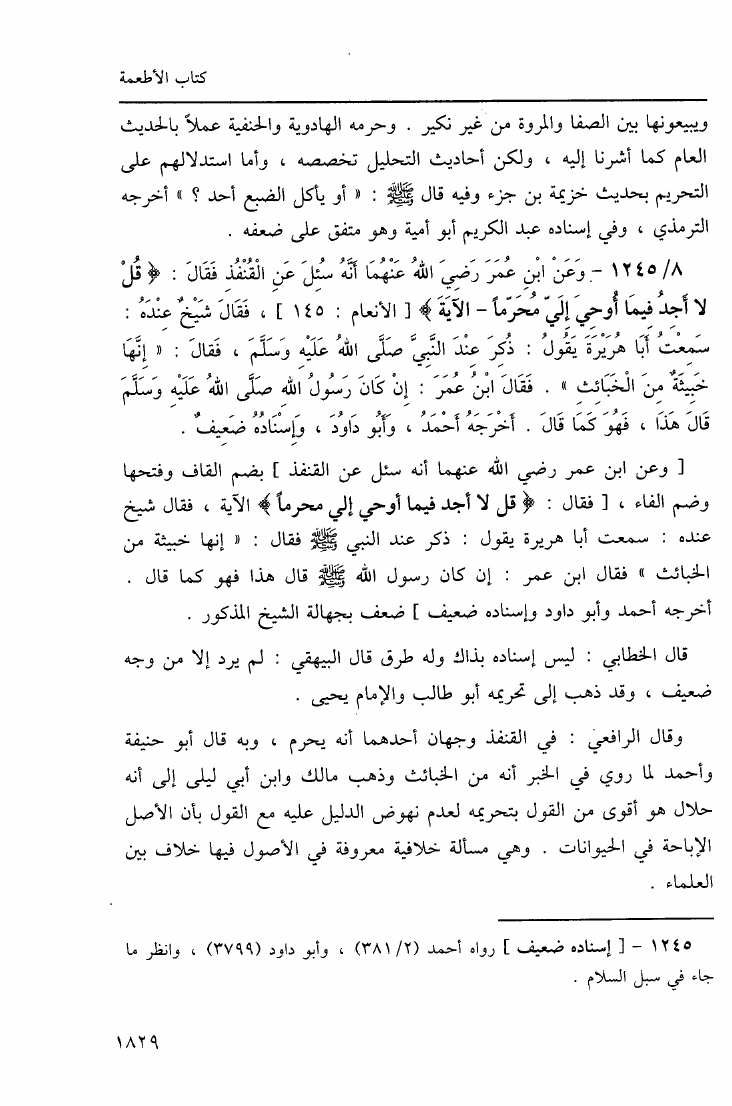 كتاب الأطعمة
ويبيعونها بين الصفا والمروة من غير نكير . وحرمه الهادوية والحنفية عملاً بالحديث
العام كما أشرنا إليه ، ولكن أحاديث التحليل تخصصه ، وأما استدلالهم على
التحريم بحديث خزيمة بن جزء وفيه قال ﷺ : « أو يأكل الضبع أحد ؟ » أخرجه
الترمذي ، وفي إسناده عبد الكريم أبو أمية وهو متفق على ضعفه .
١٢٤٥/٨ - وَعَنْ ابْنِ عُمَرَ رَضِيَ اللهُ عَنْهُمَا أَنَّهُ سُئِلَ عَنِ الْقُنْفُذِ فَقَالَ : ﴿ قُلْ
لا أَجِدُ فِيمَا أُوحِيَ إِلَيّ مُحَرّماً - الآيَةَ ﴾ [ الأنعام : ١٤٥ ] ، فَقَالَ شَيْخٌ عِنْدَهُ :
سَمِعْتُ أَبَا هُرَيْرَةَ يَقُولُ : ذُكِرَ عِنْدَ النَّبِيِّ صَلَّى اللهُ عَلَيْهِ وَسَلَّمَ ، فَقَالَ : « إِنَّهَا
خَبِيثَةٌ مِنَ الْخَبَائِثِ » . فَقَالَ ابْنُ عُمَرَ : إِنْ كَانَ رَسُولُ اللهِ صَلَّى اللهُ عَلَيْهِ وَسَلَّمَ
قَالَ هَذَا ، فَهُوَ كَمَا قَالَ . أَخْرَجَهُ أَحْمَدُ ، وَأَبُو دَاوُدَ ، وَإِسْنَادُهُ ضَعِيفٌ .
[ وعن ابن عمر رضي الله عنهما أنه سئل عن القنفذ ] بضم القاف وفتحها
وضم الفاء ، [ فقال : ﴿ قل لا أجد فيما أوحي إلي محرماً ﴾ الآية ، فقال شيخ
عنده : سمعت أبا هريرة يقول : ذكر عند النبي ﷺ فقال : « إنها خبيثة من
الخبائث » فقال ابن عمر : إن كان رسول الله ﷺ قال هذا فهو كما قال .
أخرجه أحمد وأبو داود وإسناده ضعيف ] ضعف بجهالة الشيخ المذكور .
قال الخطابي : ليس إسناده بذاك وله طرق قال البيهقي : لم يرد إلا من وجه
ضعيف ، وقد ذهب إلى تحريمه أبو طالب والإمام يحيى .
وقال الرافعي : في القنفذ وجهان أحدهما أنه يحرم ، وبه قال أبو حنيفة
وأحمد لما روي في الخبر أنه من الخبائث وذهب مالك وابن أبي ليلى إلى أنه
حلال هو أقوى من القول بتحريمه لعدم نهوض الدليل عليه مع القول بأن الأصل
الإباحة في الحيوانات . وهي مسألة خلافية معروفة في الأصول فيها خلاف بين
العلماء .
١٢٤٥ - [ إسناده ضعيف ] رواه أحمد (٣٨١/٢) ، وأبو داود (٣٧٩٩) ، وانظر ما
جاء في سبل السلام .
١٨٢٩